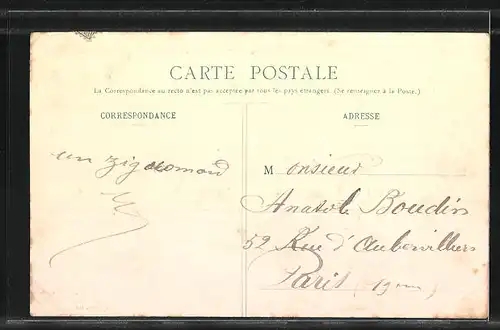 CARTE POSTALE
La Correspondance au recto n'est pas acceptée par tous les pays étrangers. (Se renseigner à la Poste.)
CORRESPONDANCE
ADRESSE
un
Monsieur
Anatole Boudin
52 Rue d'Aubervilliers
Paris (19me)